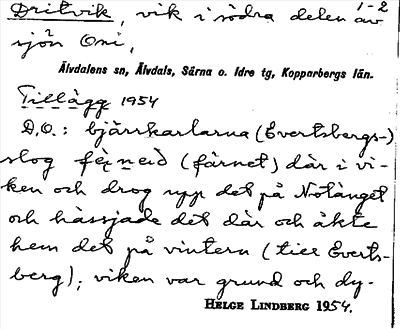 1-2
Dritvik, vik i södra delen av
sjön Oni,
Älvdalens sn, Älvdals, Särna o. Idre tg, Kopparbergs län.
Tillägg 1954
D.O.: bjärrkarlarna (Evertsbergs-)
slog (fårnet) där i vi-
ken och drog upp det på Notänget
och hässjade det där och åkte
hem det på vintern (till Everts-
berg); viken var grund och dy-
HELGE LINDBERG 1954.